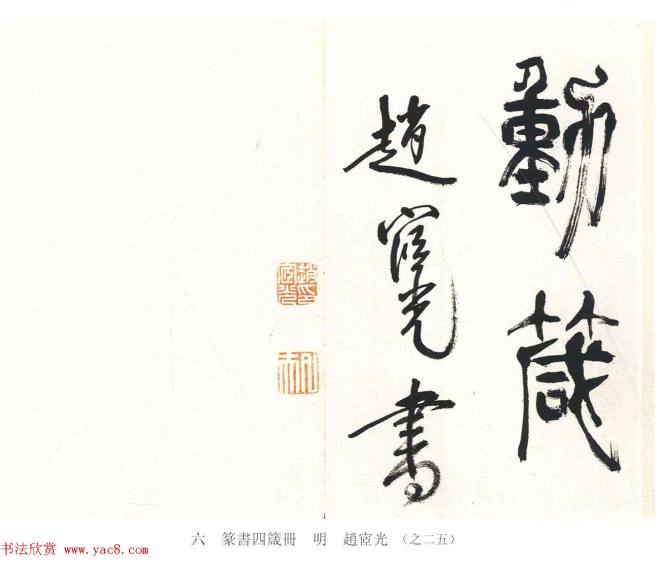 動箴
趙宧光書
六　篆書四箴冊　明　趙宧光　（之二五）
书法欣赏 www.yac8.com